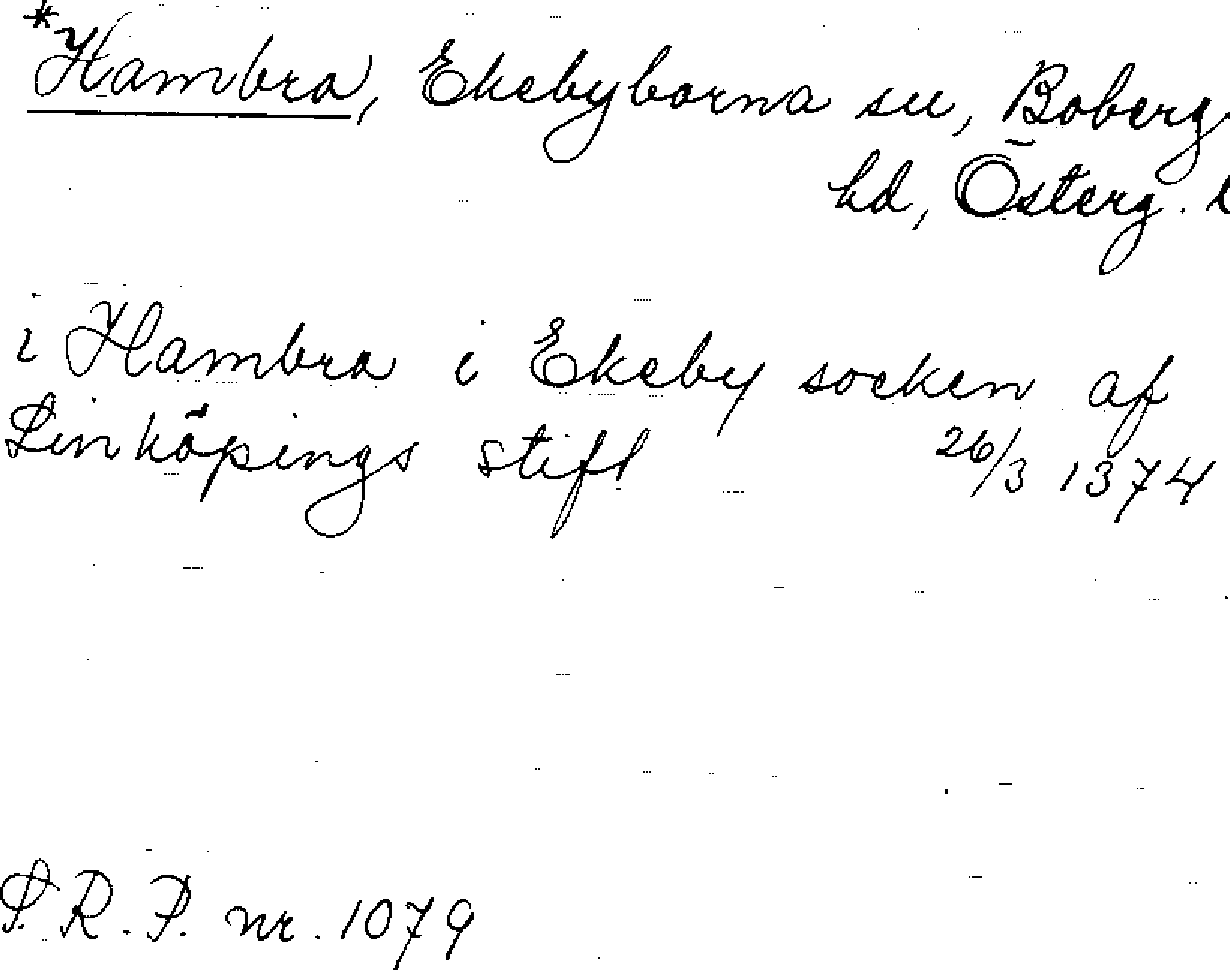 *Hambra, Ekebyborna sn, Boberg
hd, Österg. l
i Hambra i Ekeby socken af
Linköpings stift 26/3 1374
S.R.P. nr. 1079